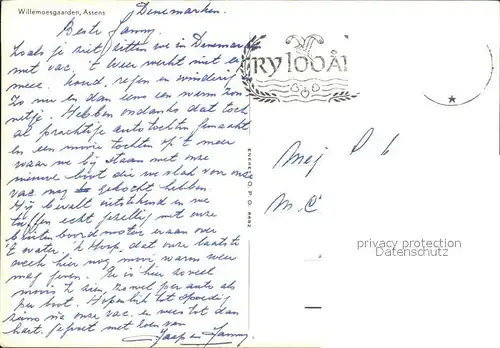 Willemoesgaarden, Assens
Denemarken.
Beste Fanny.
Zoals je ziet, zitten we in Denemarken
met vac. 't Weer werkt niet erg
mee. Koud, regen en winderig
Zo nu en dan eens een warm zon
netje. Hebben ondanks dat toch
al prachtige autotochten gemaakt
en een mooie tochten op 't meer
waar we bij staan met onze
nieuwe boot die we vlak voor onze
vac. nog gekocht hebben.
Hij bevalt uitstekend en we
tuffen echt gezellig met onze
buitenboordmotor eraan over
't water. 'k Hoop, dat onze laatste
week hier nog mooi warm weer
mag geven. Er is hier zoveel
moois te zien, zowel per auto als
per boot. Hopenlijk tot spoedig
ziens na onze vac. en wees tot dan
hart. gegroet met zoen van
Jaap en Fanny.
RY 100 ÅR
ENEKE O.P.O. 6692
Mej P b
M. C
privacy protection
Datenschutz